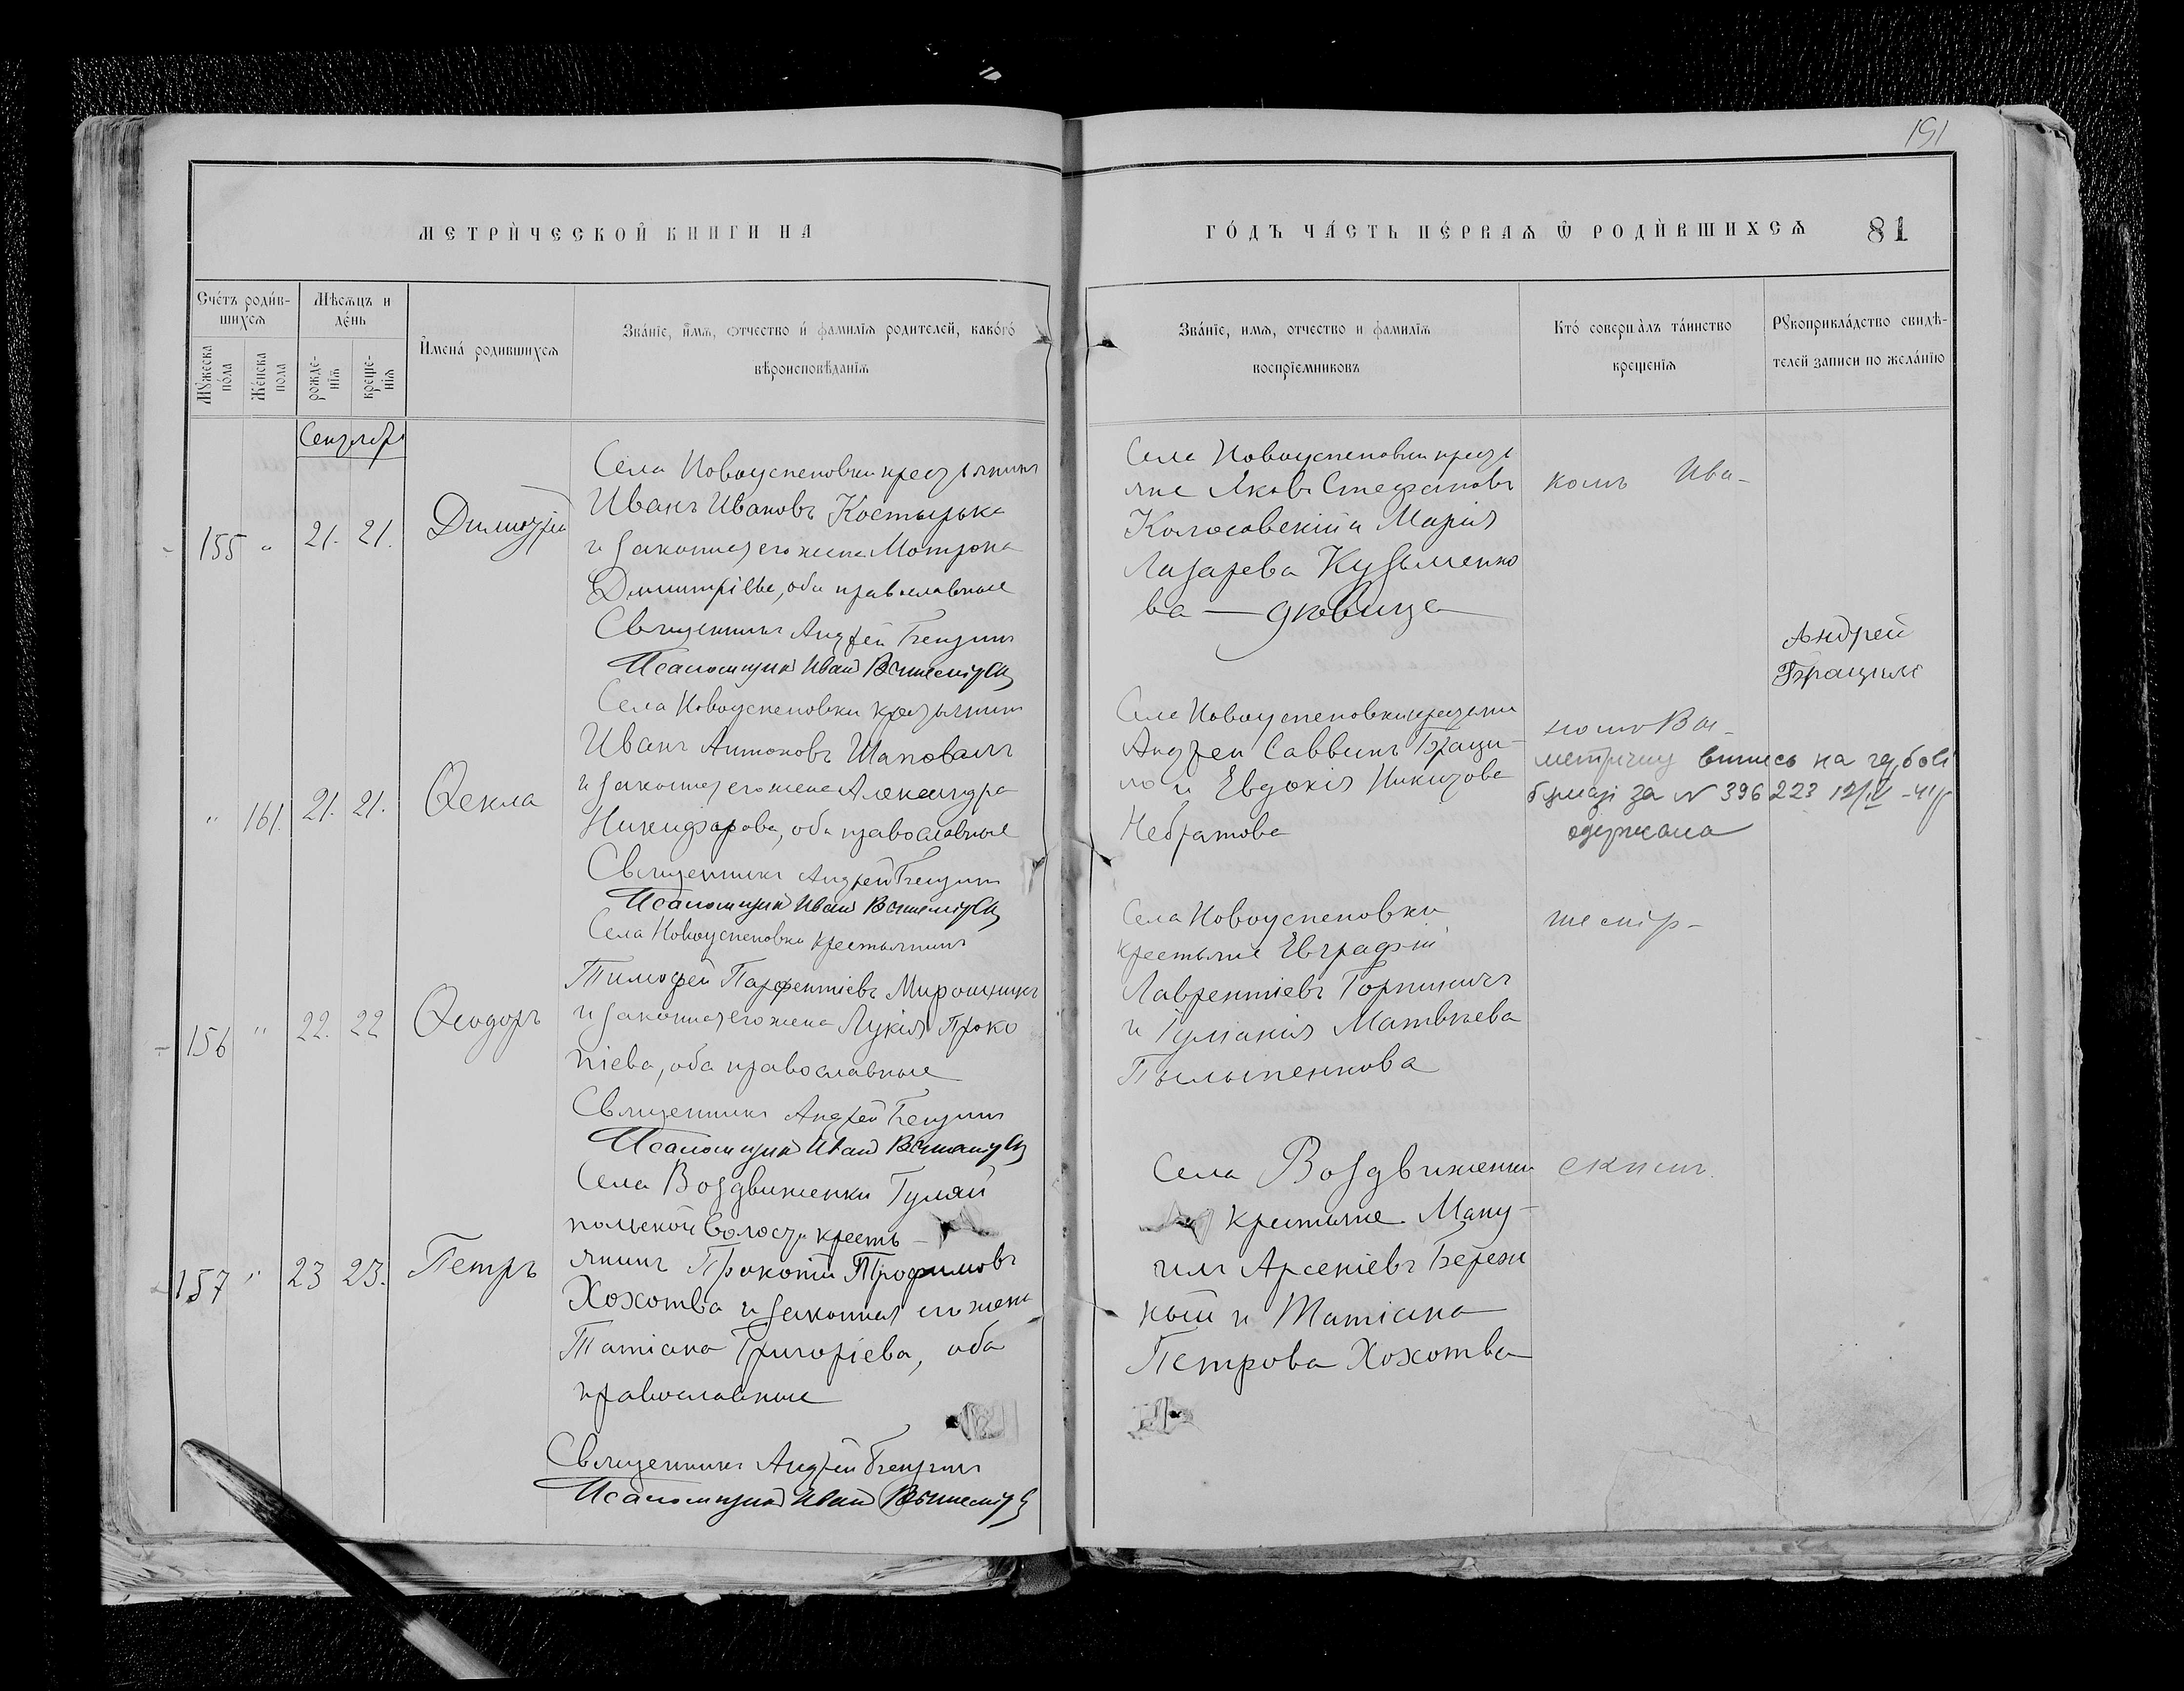 191
МЕТРИ́ЧЕСКОЙ КНИГИ НА
ГО́ДЪ ЧА́СТЬ ПЕ́РВАѦ Ѡ РОДИ́ВШИХСѦ 81
Сче́тъ роди́в-
шихсѧ
Мѣсѧцъ и
де́нь
Мꙋ́жеска
по́ла
Же́нска
пола
рожде-
нїѧ
креще-
нїѧ
И҆мена́ родившихсѧ
Зва́нїе, и҆́мѧ, ѻтчество и҆ фамилїѧ родителей, како́гѡ
вѣроисповѣ́данїѧ
Зва́нїе, имѧ, отчество и фамилїѧ
воспрїемниковъ
Кто́ соверша́лъ та́инство
крещенїѧ
Рꙋкоприкла́дство свидѣ-
телей записи по жела́нїю
Сентябрь
155 " 21. 21. Димитрій
Села Новоуспеновки крестьянинъ
Иванъ Ивановъ Костырька
и законная его жена Мотрона
Димитріева, оба православные
Священникъ Андрей
Псаломщикъ Иванъ
Села Новоуспеновки кресть
яне Яковъ Стефановъ
Колосовскій и Марія
Лазарева Кузьменко
ва — дѣвица
комъ Ива-
Андрей
" 161. 21. 21. Ѳекла
Села Новоуспеновки крестьянинъ
Иванъ Антоновъ Шаповалъ
и законная его жена Александра
Никифорова, оба православные
Священникъ Андрей
Псаломщикъ Иванъ
Села Новоуспеновки крестьяне
Андрей Саввинъ Браци-
ло и Евдокія
Небратова
метричну випись на гербові
бумазі за N 396223
одержала
156 " 22. 22 Ѳеодоръ
Села Новоуспеновки крестьянинъ
Тимофей Парфентіевъ Мирошникъ
и законная его жена Лукія Проко
піева, оба православные
Священникъ Андрей
Псаломщикъ Иванъ
Села Новоуспеновки
крестьяне Евграфій
Лаврентіевъ
и Іуліанія Матвѣева
Пылыпенкова
157 " 23 23. Петръ
Села Воздвиженки Гуляй
польской волости кресть-
янинъ Прокопій Трофимовъ
Хохотва и законная его жена
Татіана Григоріева, оба
православные
Священникъ Андрей
Псаломщикъ Иванъ
Села Воздвиженки
крестьяне Ману-
илъ Арсеніевъ Береж
ный и Татіана
Петрова Хохотва